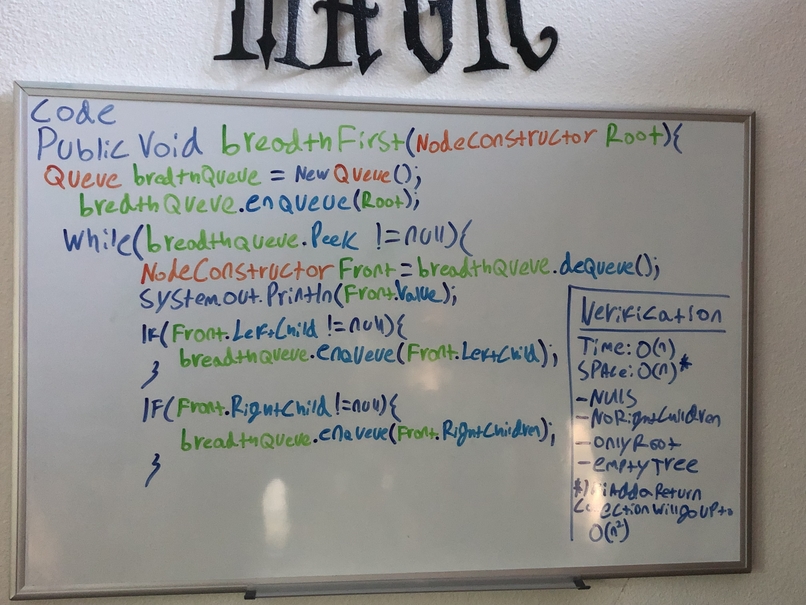 MAGIC
Code
Public Void breadthFirst(NodeConstructor Root){
Queue bredthQueue = New Queue();
bredthQueue.enQueue(Root);
While(breadthQueue.Peek !=null){
NodeConstructor Front=breadthQueue.deQueue();
System.out.Println(Front.Value);
IF(Front.LeftChild !=null){
breadthQueue.enqueue(Front.LeftChild);
}
IF(Front.RightChild !=null){
breadthQueue.enqueue(Front.RightChildren);
}
Verification
Time: O(n)
SPAce: O(n)*
-Nulls
-NoRightChildren
-onlyRoot
-emptyTree
Add a Return
Will go UP to
O(n²)